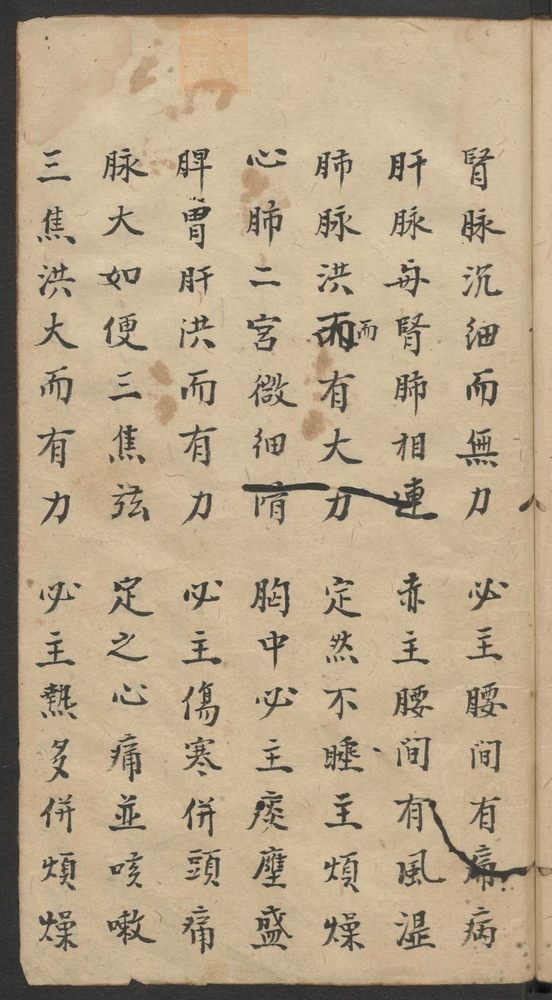 腎脉沉細而無力　必主腰間有痛病
肝脉毋腎肺相連　赤主腰間有風濕
肺脉洪而有大力　定然不睡主煩燥
心肺二宮微細　胸中必主痰壅盛
脾胃肝洪而有力　必主傷寒併頭痛
脉大如便三焦弦　定之心痛並咳嗽
三焦洪大而有力　必主熱多併煩燥